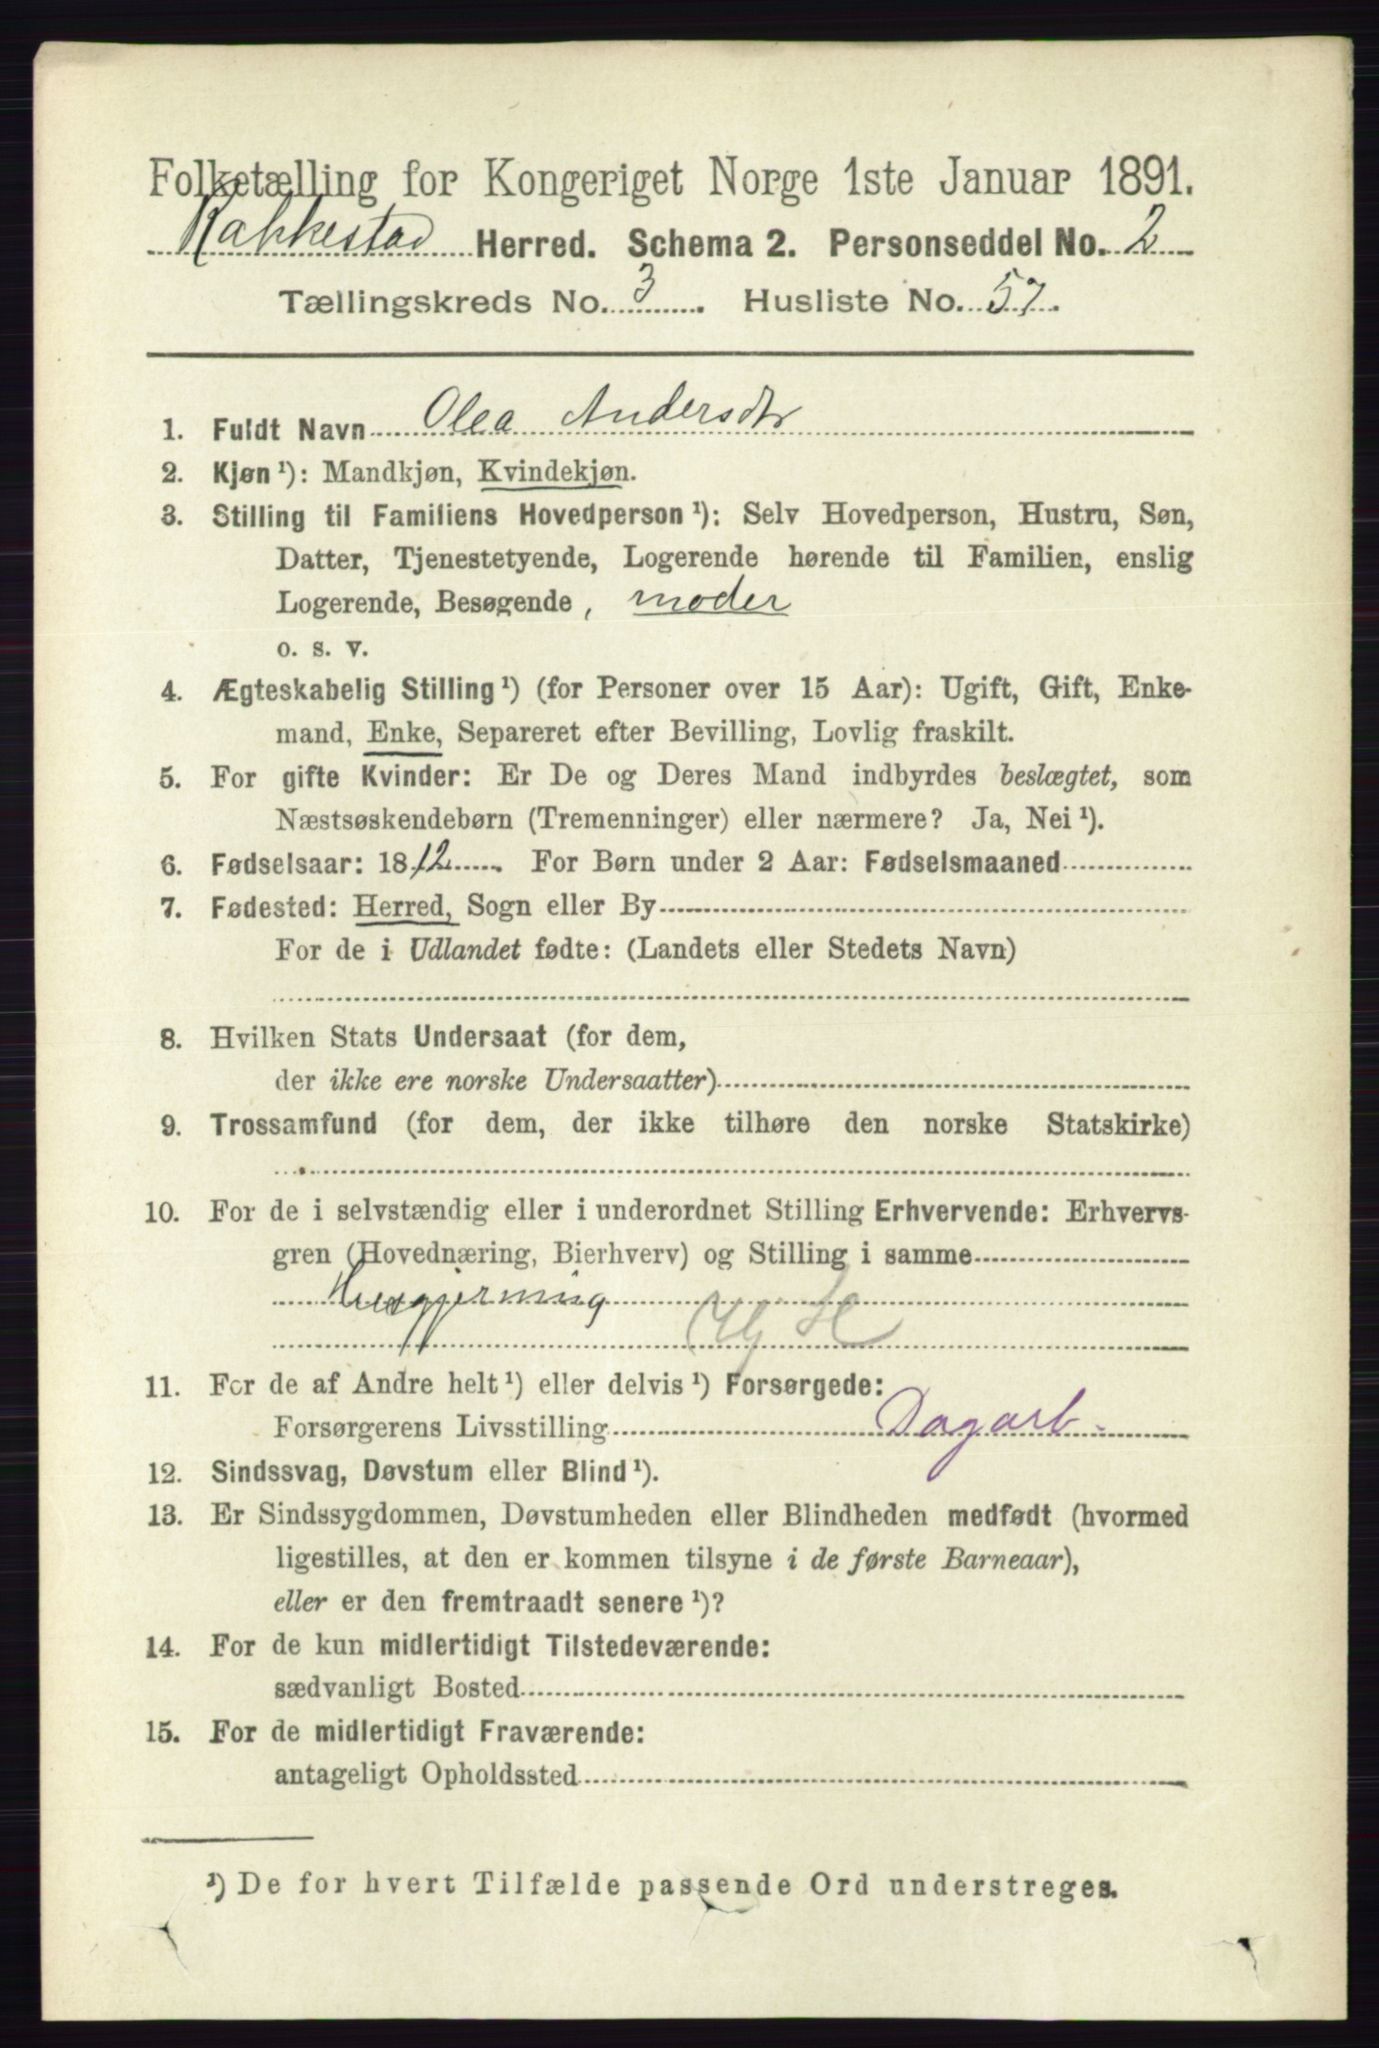 Folketælling for Kongeriget Norge 1ste Januar 1891.
Rakkestad Herred. Schema 2. Personseddel No. 2
Tællingskreds No. 3. Husliste No. 57.
1. Fuldt Navn Olea Andersdtr
2. Kjøn ¹): Mandkjøn, Kvindekjøn.
3. Stilling til Familiens Hovedperson ¹): Selv Hovedperson, Hustru, Søn,
Datter, Tjenestetyende, Logerende hørende til Familien, enslig
Logerende, Besøgende, moder
o. s. v.
4. Ægteskabelig Stilling ¹) (for Personer over 15 Aar): Ugift, Gift, Enke-
mand, Enke, Separeret efter Bevilling, Lovlig fraskilt.
5. For gifte Kvinder: Er De og Deres Mand indbyrdes beslægtet, som
Næstsøskendebørn (Tremenninger) eller nærmere? Ja, Nei ¹).
6. Fødselsaar: 1812. For Børn under 2 Aar: Fødselsmaaned
7. Fødested: Herred, Sogn eller By
For de i Udlandet fødte: (Landets eller Stedets Navn)
8. Hvilken Stats Undersaat (for dem,
der ikke ere norske Undersaatter)
9. Trossamfund (for dem, der ikke tilhøre den norske Statskirke)
10. For de i selvstændig eller i underordnet Stilling Erhvervende: Erhvervs-
gren (Hovednæring, Bierhverv) og Stilling i samme
Husgjerning
11. For de af Andre helt ¹) eller delvis ¹) Forsørgede:
Forsørgerens Livsstilling Dagarb.
12. Sindssvag, Døvstum eller Blind ¹).
13. Er Sindssygdommen, Døvstumheden eller Blindheden medfødt (hvormed
ligestilles, at den er kommen tilsyne i de første Barneaar),
eller er den fremtraadt senere ¹)?
14. For de kun midlertidigt Tilstedeværende:
sædvanligt Bosted
15. For de midlertidigt Fraværende:
antageligt Opholdssted
¹) De for hvert Tilfælde passende Ord understreges.